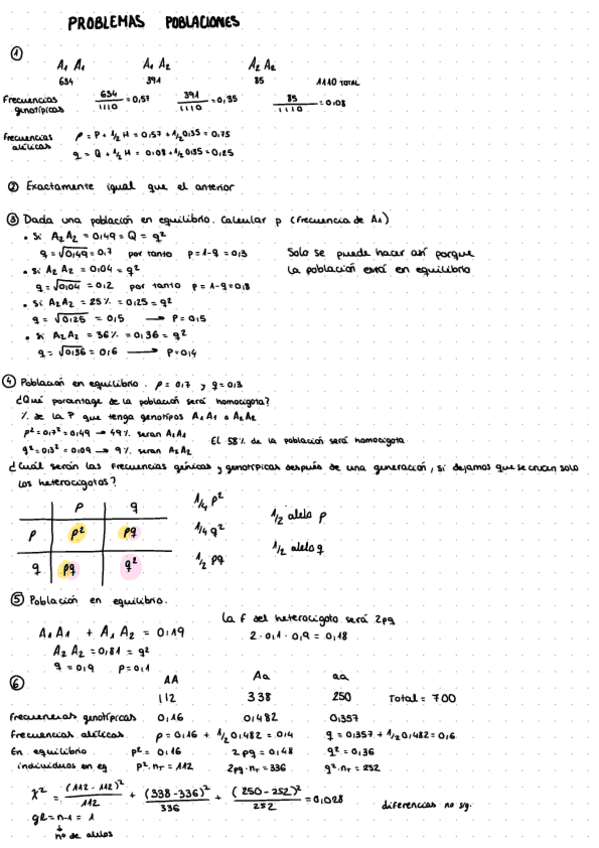 PROBLEMAS POBLACIONES
①
A₁ A₁ A₁ A₂ A₂ A₂
634 391 85 1110 TOTAL
Frecuencias genotípicas 634/1110 = 0,57 391/1110 = 0,35 85/1110 = 0,08
Frecuencias alélicas p = P + 1/2 H = 0,57 + 1/2 0,35 = 0,75
q = Q + 1/2 H = 0,08 + 1/2 0,35 = 0,25
② Exactamente igual que el anterior
③ Dada una población en equilibrio. Calcular p (frecuencia de A₁)
• Si A₂A₂ = 0,49 = Q = q²
q = √0,49 = 0,7 por tanto p = 1-q = 0,3 Solo se puede hacer así porque
• Si A₂A₂ = 0,04 = q² la población está en equilibrio
q = √0,04 = 0,2 por tanto p = 1-q = 0,8
• Si A₂A₂ = 25% = 0,25 = q²
q = √0,25 = 0,5 → p = 0,5
• Si A₂A₂ = 36% = 0,36 = q²
q = √0,36 = 0,6 → p = 0,4
④ Población en equilibrio. p = 0,7 y q = 0,3
¿Qué porcentage de la población será homocigota?
% de la P que tenga genotipos A₁A₁ o A₂A₂
p² = 0,7² = 0,49 → 49% seran A₁A₁
q² = 0,3² = 0,09 → 9% seran A₂A₂ El 58% de la población será homocigota
¿Cuál serán las frecuencias génicas y genotípicas después de una generación, si dejamos que se crucen solo
los heterocigotos?
p q
p p² pq
q pq q²
1/4 p²
1/4 q²
1/2 pq
1/2 alelo p
1/2 alelo q
⑤ Población en equilibrio.
A₁A₁ + A₁A₂ = 0,19
A₂A₂ = 0,81 = q²
q = 0,9 p = 0,1
La f del heterocigoto será 2pq
2 · 0,1 · 0,9 = 0,18
⑥ AA Aa aa
112 338 250 Total = 700
Frecuencias genotípicas 0,16 0,482 0,357
Frecuencias alélicas p = 0,16 + 1/2 0,482 = 0,4 q = 0,357 + 1/2 0,482 = 0,6
En equilibrio p² = 0,16 2pq = 0,48 q² = 0,36
individuos en eq p²·nT = 112 2pq·nT = 336 q²·nT = 252
χ² = (112 - 112)²/112 + (338-336)²/336 + (250-252)²/252 = 0,028 diferencias no sg.
gl = n-1 = 1
↓
nº de alelos